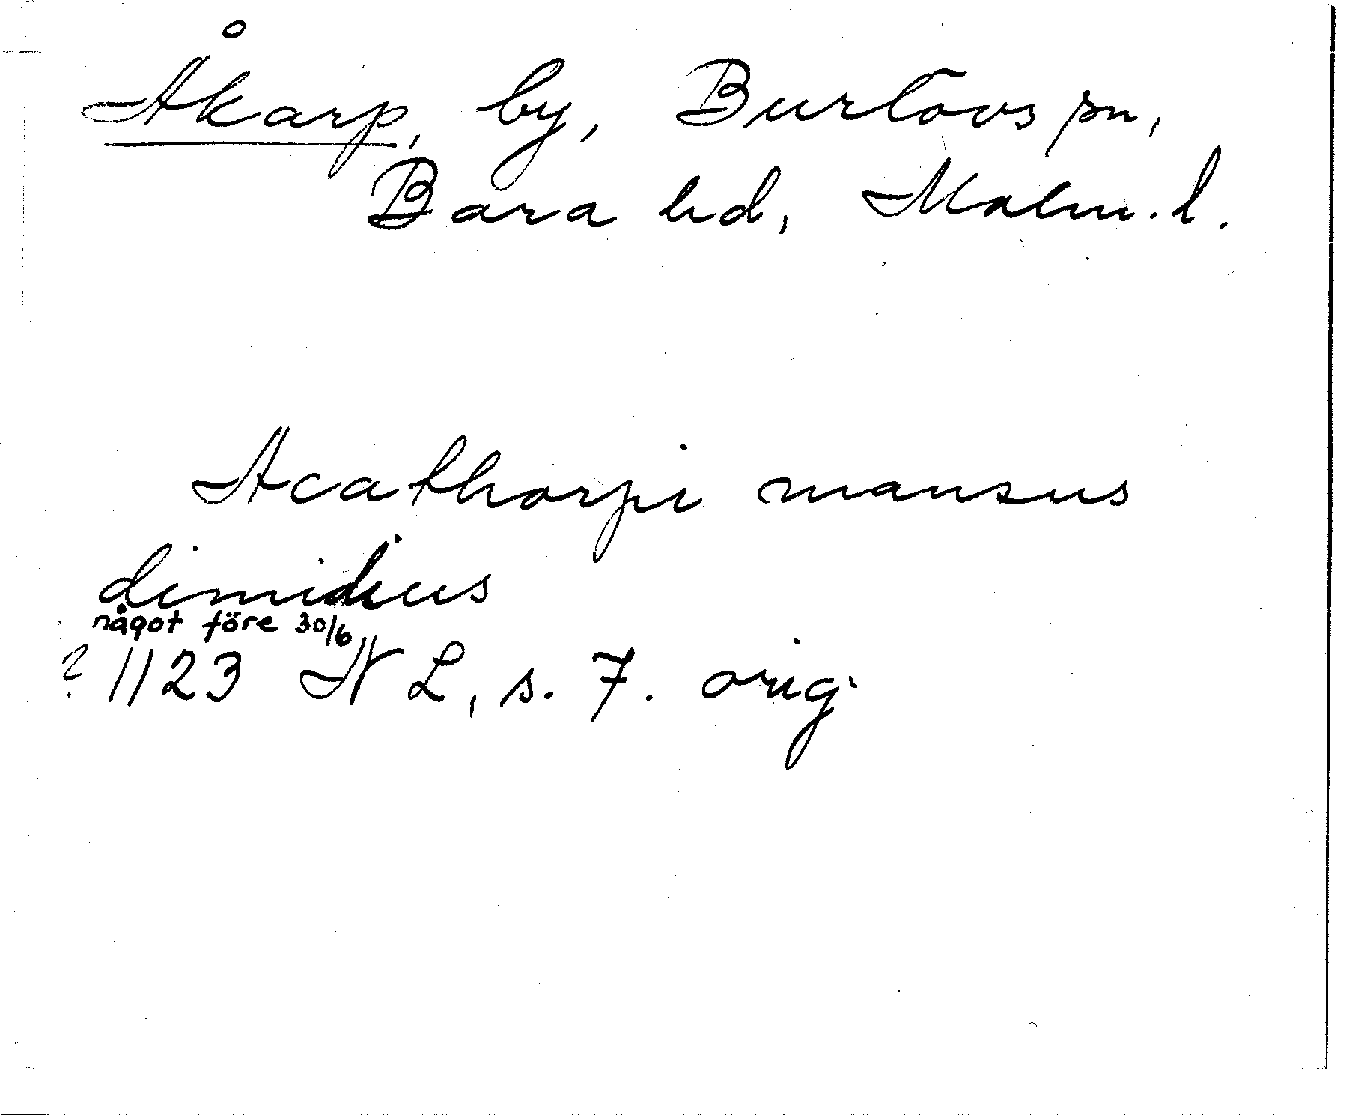 Åkarp, by, Burlövs sn,
Bara hd, Malm. l.
Acathorpi mansus
dimidius
något före 30/6
? 1123 N L, s. 7. orig.